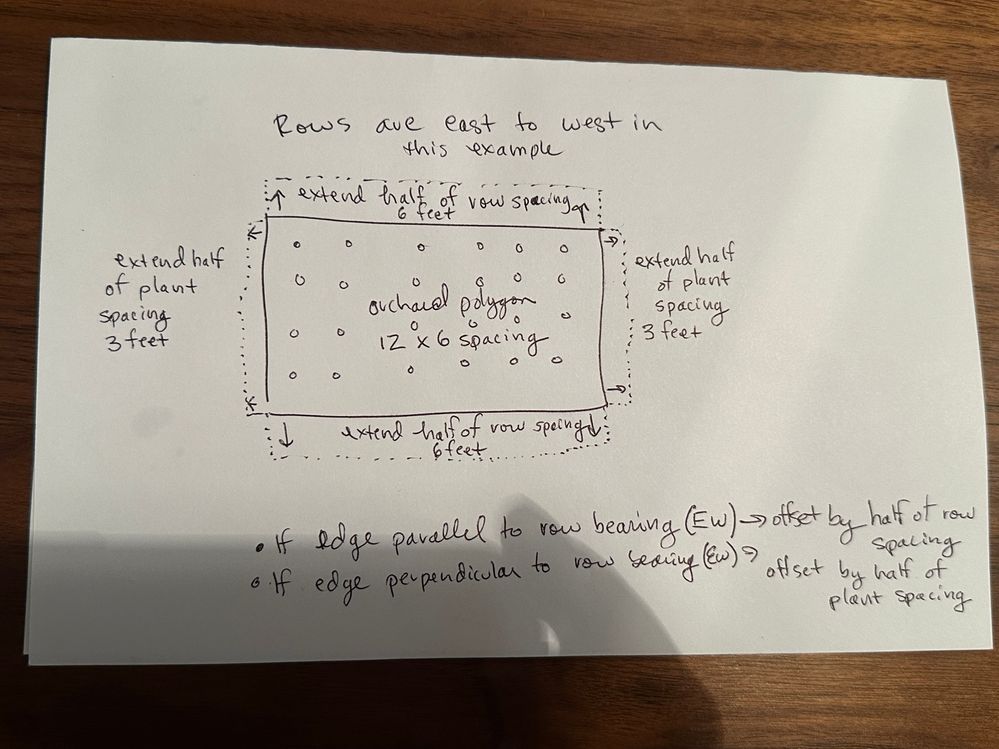 Rows are east to west in
this example
extend half of row spacing
6 feet
extend half
of plant
spacing
3 feet
orchard polygon
12 x 6 spacing
extend half
of plant
spacing
3 feet
extend half of row spacing
6 feet
• If edge parallel to row bearing (EW) → offset by half of row
spacing
• If edge perpendicular to row bearing (EW) → offset by half of
plant spacing